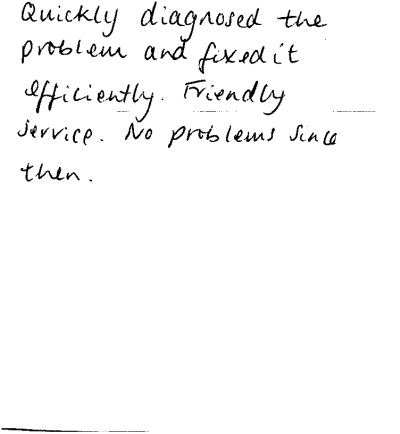 Quickly diagnosed the
problem and fixed it
efficiently. Friendly
service. No problems since
then.